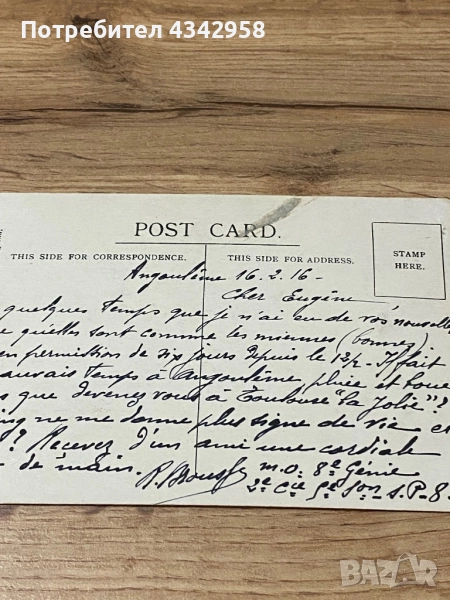 Потребител 4342958
POST CARD.
THIS SIDE FOR CORRESPONDENCE.
THIS SIDE FOR ADDRESS.
STAMP
HERE.
Angoulême 16.2.16 -
Cher Eugène
quelques temps que je n'ai eu de vos nouvelles
qu'elles sont comme les miennes (bonnes).
en permission de six jours depuis le 12/2 - Il fait
mauvais temps à Angoulême, pluie et boue
que devenez vous à Toulouse "la Jolie"?
ne me donne plus signe de vie et
? Recevez d'un ami une cordiale
de main.
m.o. 8e Génie
2e Cie S.P. 8
BAZAR